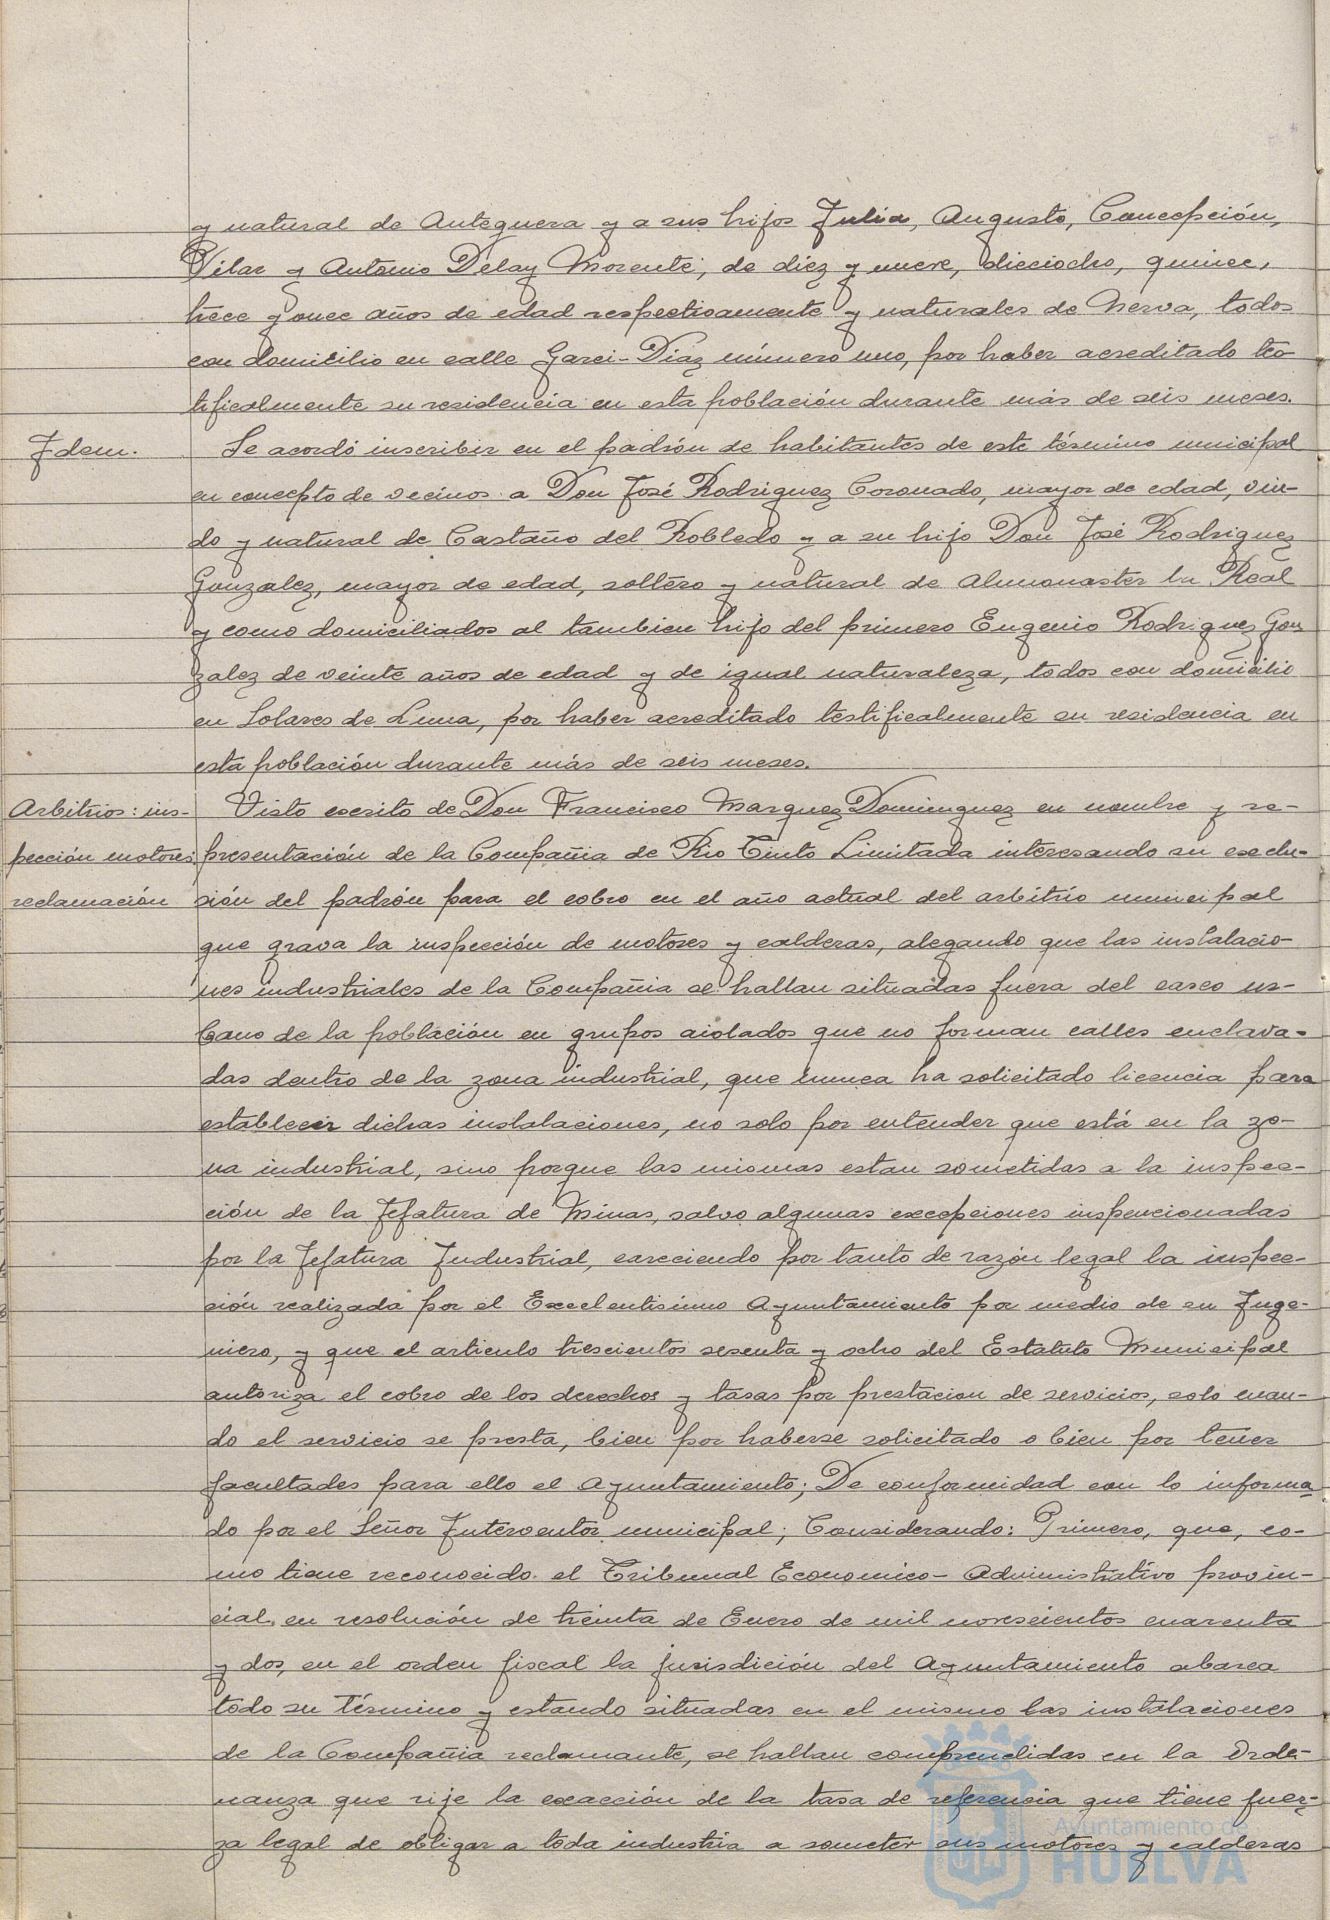 y natural de Antequera y a sus hijos Julia, Augusto, Concepción,
Pilar y Antonio Delay Morente, de diez y nueve, dieciocho, quince,
trece y once años de edad respectivamente y naturales de Nerva, todos
con domicilio en calle Garci-Diaz número uno, por haber acreditado tes-
tificalmente su residencia en esta población durante más de seis meses.
Idem.
Se acordó inscribir en el padrón de habitantes de este término municipal
en concepto de vecinos a Don José Rodriguez Coronado, mayor de edad, viu-
do y natural de Castaño del Robledo y a su hijo Don José Rodriguez
Gonzalez, mayor de edad, soltero y natural de Almonaster la Real
y como domiciliados al tambien hijo del primero Eugenio Rodriguez Gon
zalez de veinte años de edad y de igual naturaleza, todos con domicilio
en Solares de Luna, por haber acreditado testificalmente su residencia en
esta población durante más de seis meses.
Arbitrios: ins-
pección motores;
reclamación
Visto escrito de Don Francisco Marquez Dominguez en nombre y re-
presentación de la Compañia de Rio Tinto Limitada interesando su exclu-
sión del padrón para el cobro en el año actual del arbitrio municipal
que grava la inspección de motores y calderas, alegando que las instalacio-
nes industriales de la Compañia se hallan situadas fuera del casco ur-
bano de la población en grupos aislados que no forman calles enclava-
das dentro de la zona industrial, que nunca ha solicitado licencia para
establecer dichas instalaciones, no solo por entender que está en la zo-
na industrial, sino porque las mismas estan sometidas a la inspec-
ción de la Jefatura de Minas, salvo algunas excepciones inspencionadas
por la Jefatura Industrial, careciendo por tanto de razón legal la inspec-
ción realizada por el Excelentisimo Ayuntamiento por medio de su Inge-
niero, y que el articulo trescientos sesenta y ocho del Estatuto Municipal
autoriza el cobro de los derechos y tasas por prestacion de servicios, solo cuan-
do el servicio se presta, bien por haberse solicitado o bien por tener
facultades para ello el Ayuntamiento; De conformidad con lo informa-
do por el Señor Interventor municipal; Considerando: Primero, que, co-
mo tiene reconocido el Tribunal Economico-Administrativo provin-
cial, en resolución de treinta de Enero de mil novescientos cuarenta
y dos, en el orden fiscal la jurisdición del Ayuntamiento abarca
todo su Término y estando situadas en el mismo las instalaciones
de la Compañia reclamante, se hallan comprendidas en la Orde-
nanza que rije la exacción de la tasa de referencia que tiene fuer-
za legal de obligar a toda industria a someter sus motores y calderas
Ayuntamiento de
HUELVA